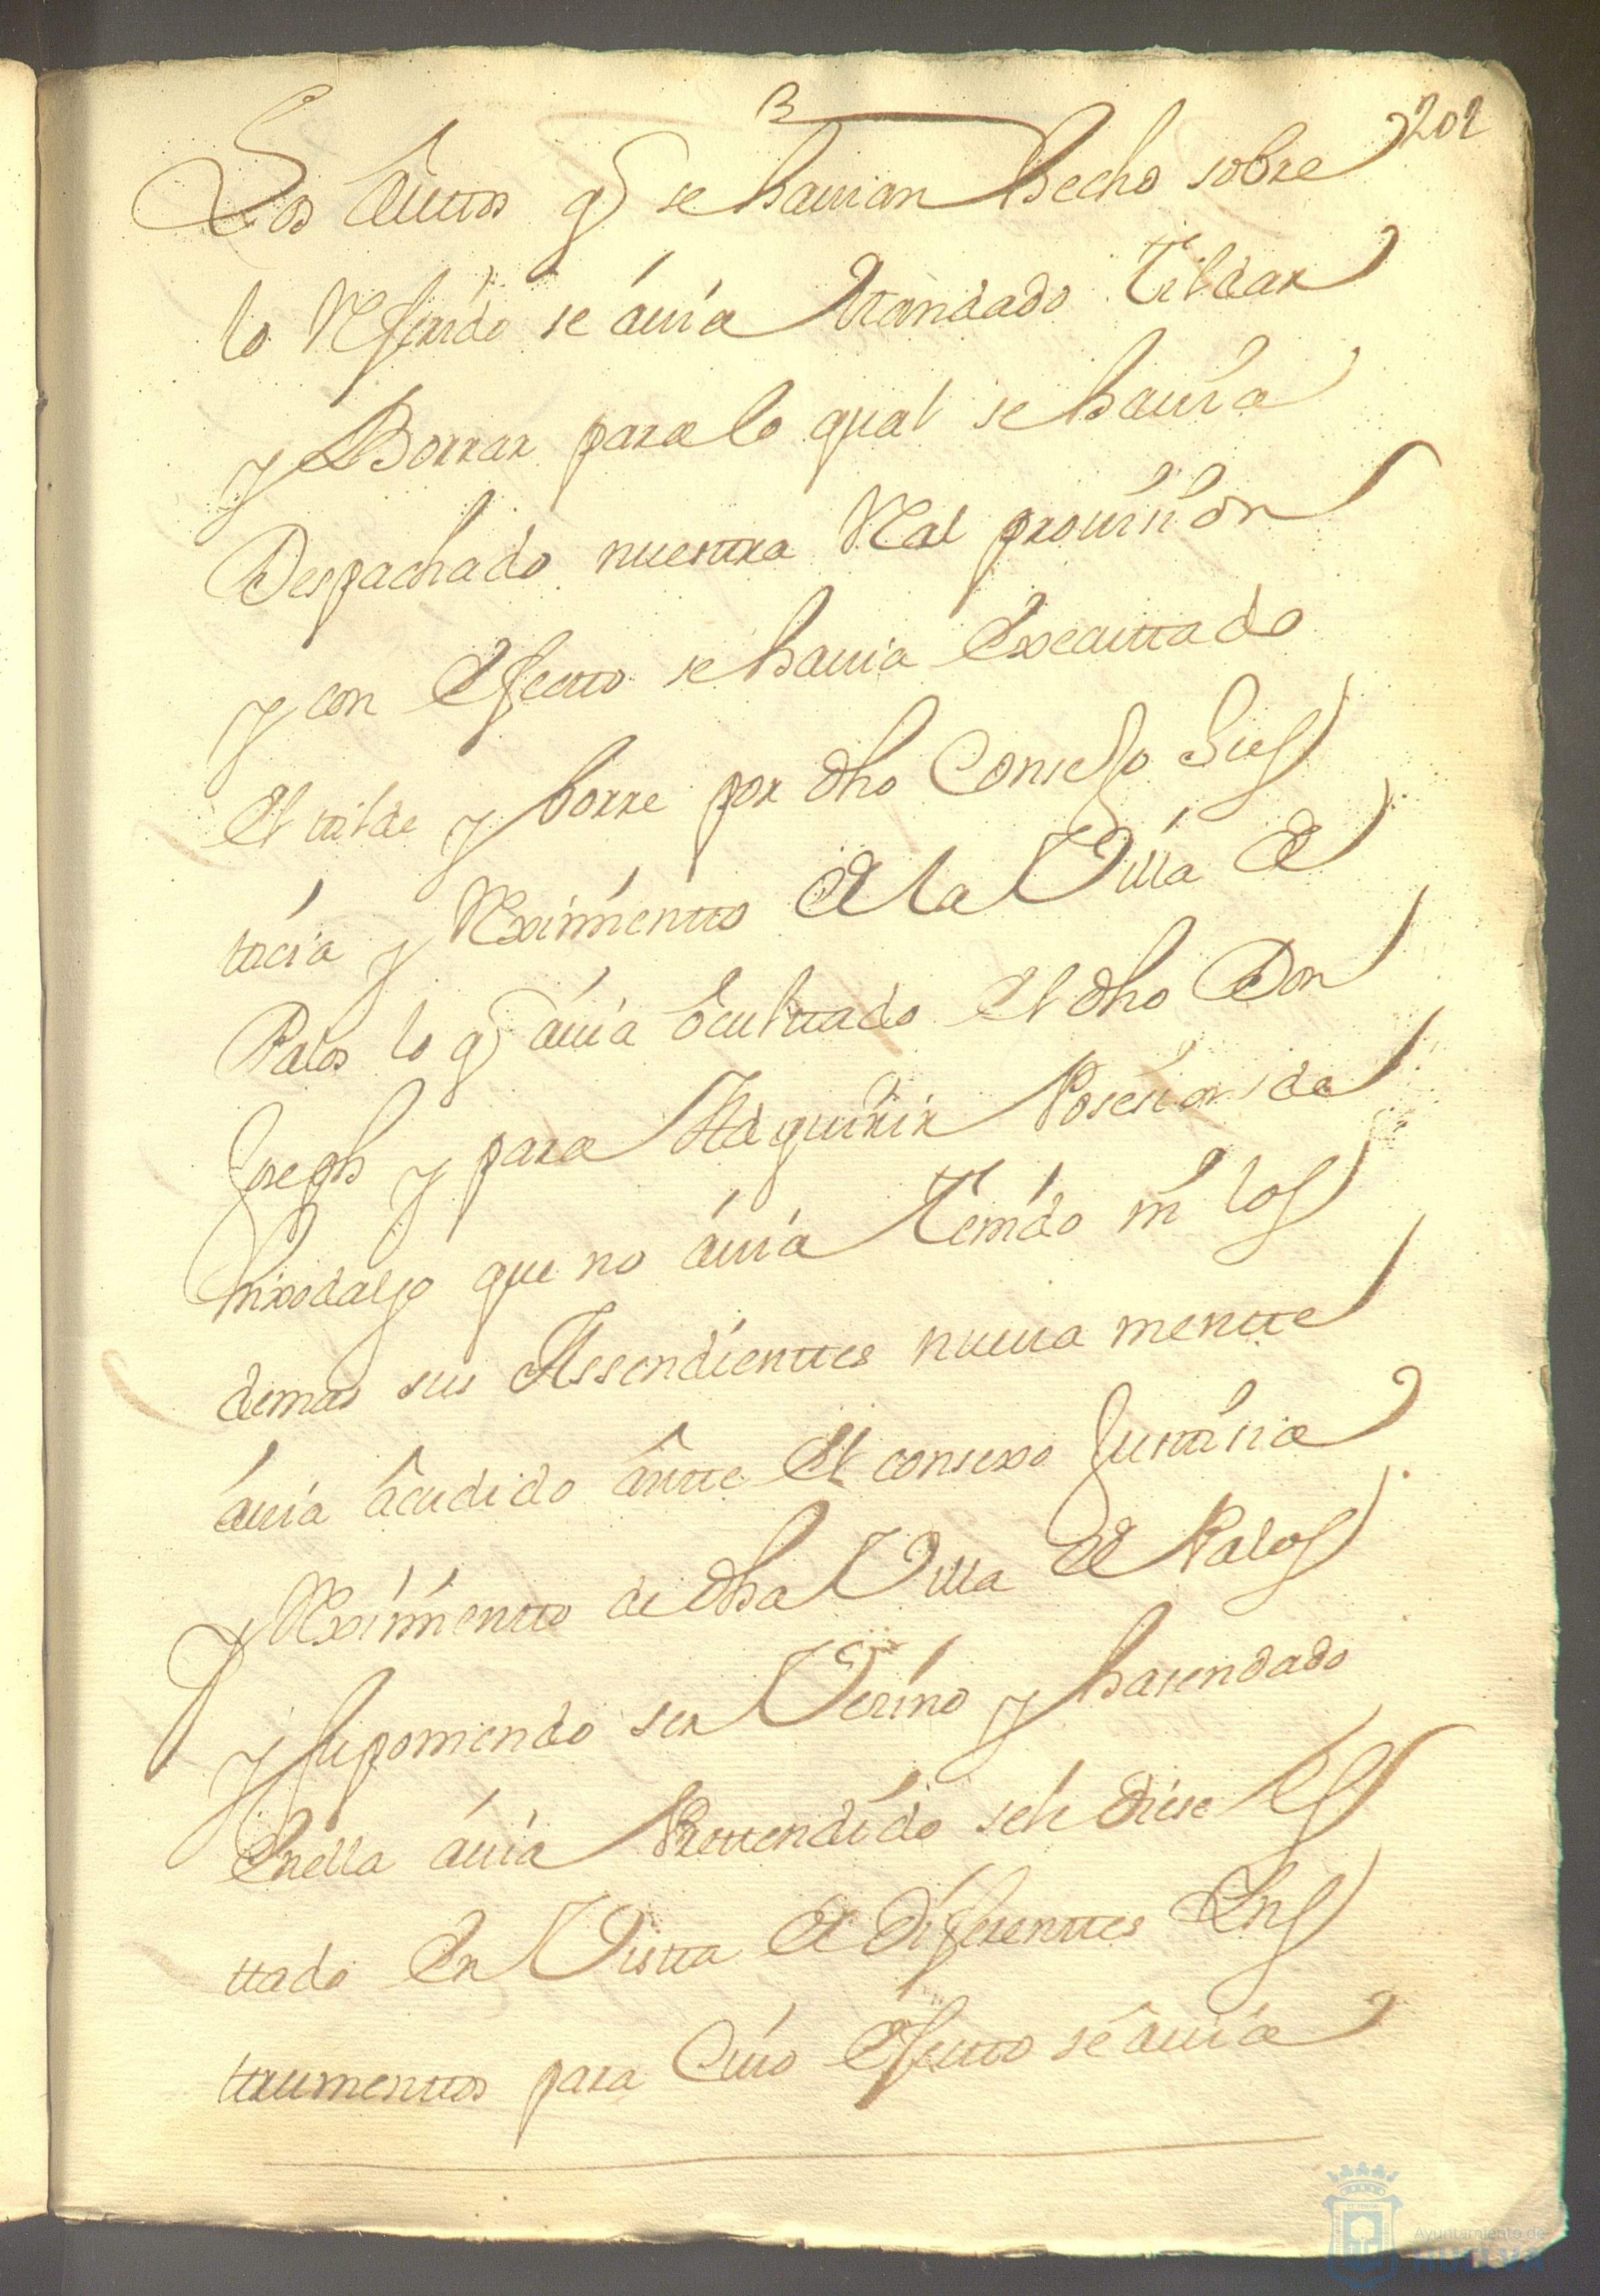 3
202
Los âuttos q se hauian hecho sobre
lo Referido se áuia Mandado tildar
y Borrar para lo qual se hauia
Despachado nuestra Real prouision
y con efectto se hauia executtado
el tilde y borre por dho Consejo Jus
ticia y Reximientto de la Villa de
Palos lo q áuia ôculttado el dho Don
Joseph y para Adquirir Posesion de
hixodalgo que no áuia tenido ni los
demas sus Assendienttes nueua mentte
áuia âcudido ântte el consexo Justisia
y Reximientto de dha Villa de Palos
y suponiendo ser Vezino y hasendado
Enella áuia Prettendido sele diese es
ttado en Vistta de diferenttes Ins
trumenttos para Cuio efectto se auia
Ayuntamiento de
HUELVA